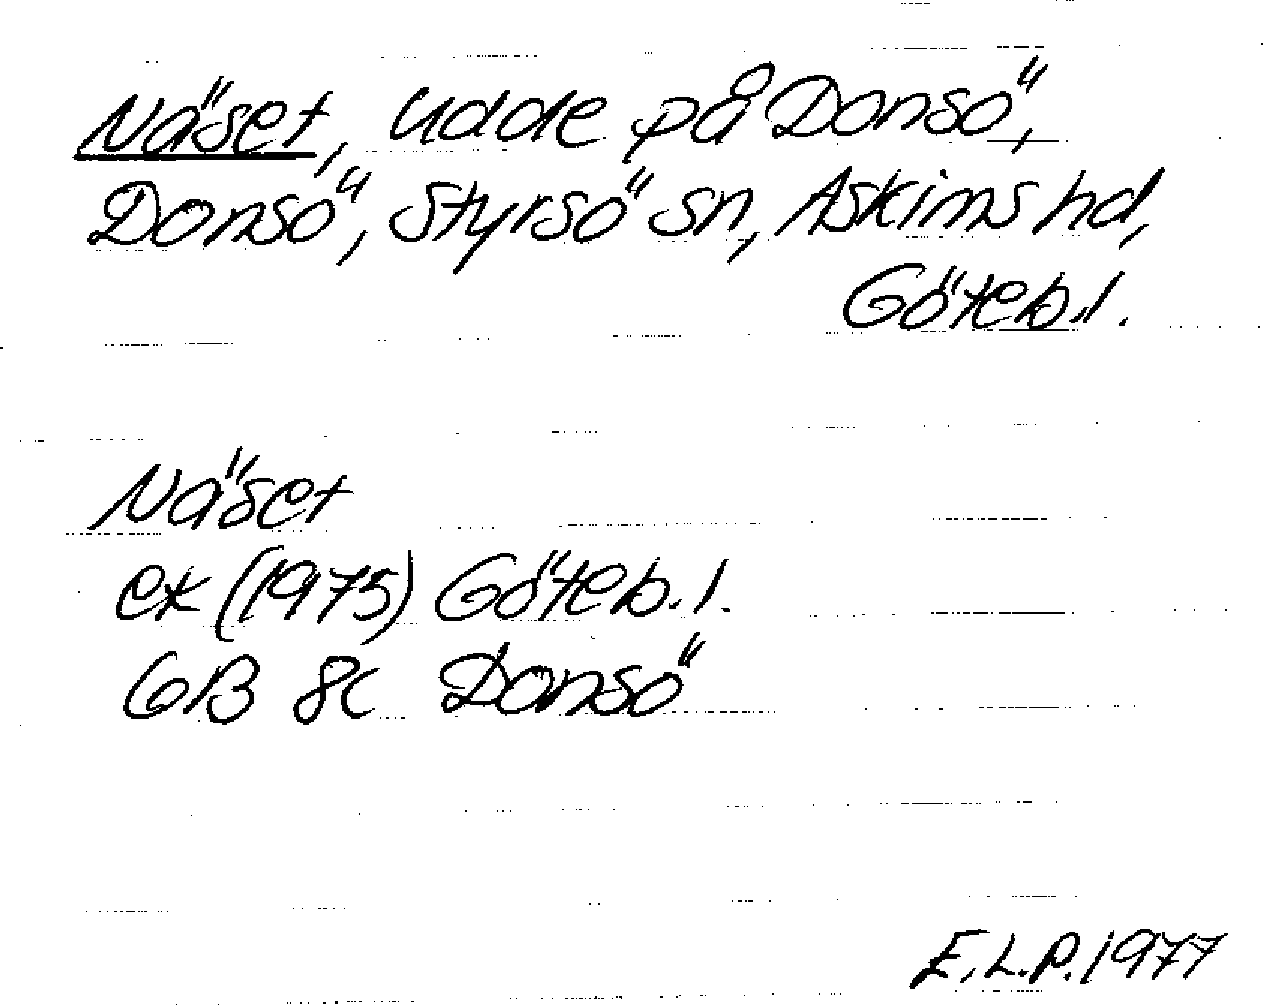 Näset, udde på Donsö,
Donsö, Styrsö sn, Askims hd,
Göteb.l.
Näset
ek (1975) Göteb.l.
GB 8c Donsö
E.L.P. 1977